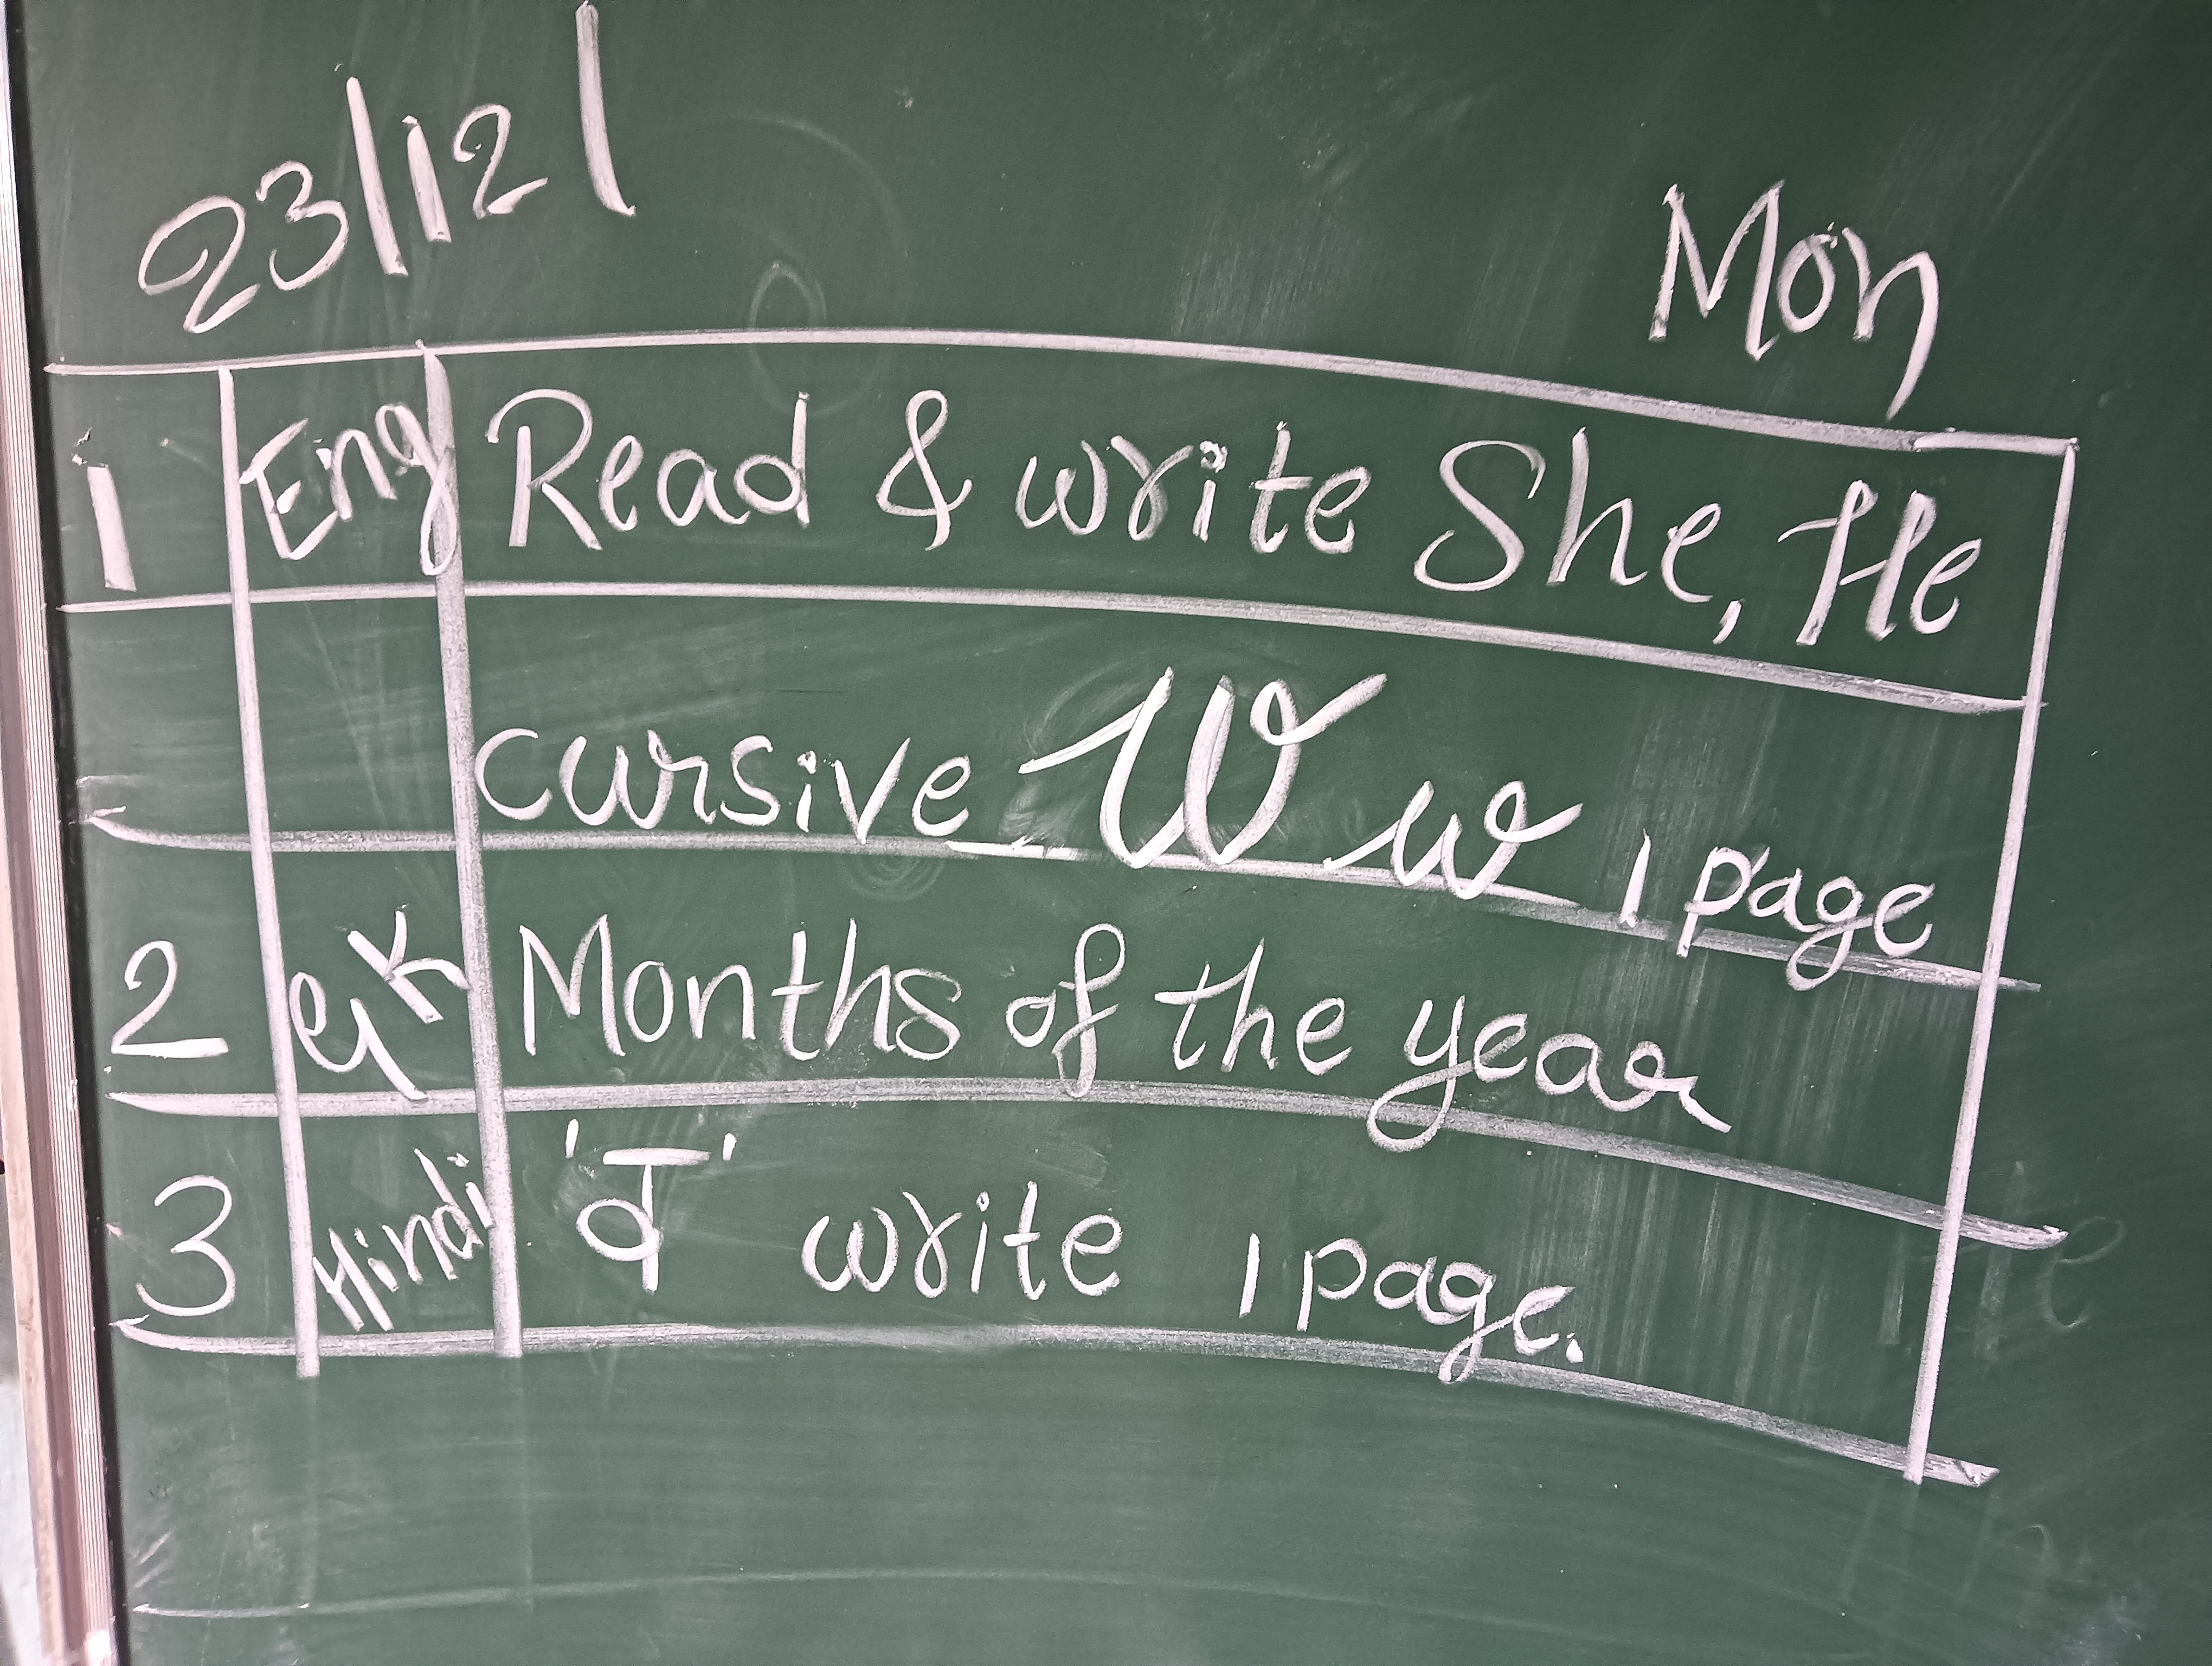 23/12/
Mon
1 Eng Read & write She, He
cursive W w 1 page
2 GK Months of the year
3 Hindi 'व' write 1 page.